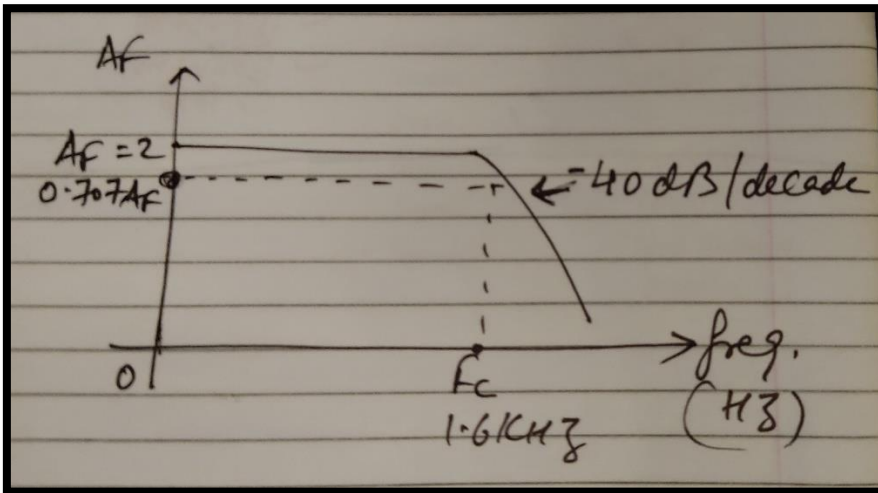 AF
AF = 2
0.707AF
-40 dB/decade
0
Fc
1.6KHZ
freq.
(HZ)